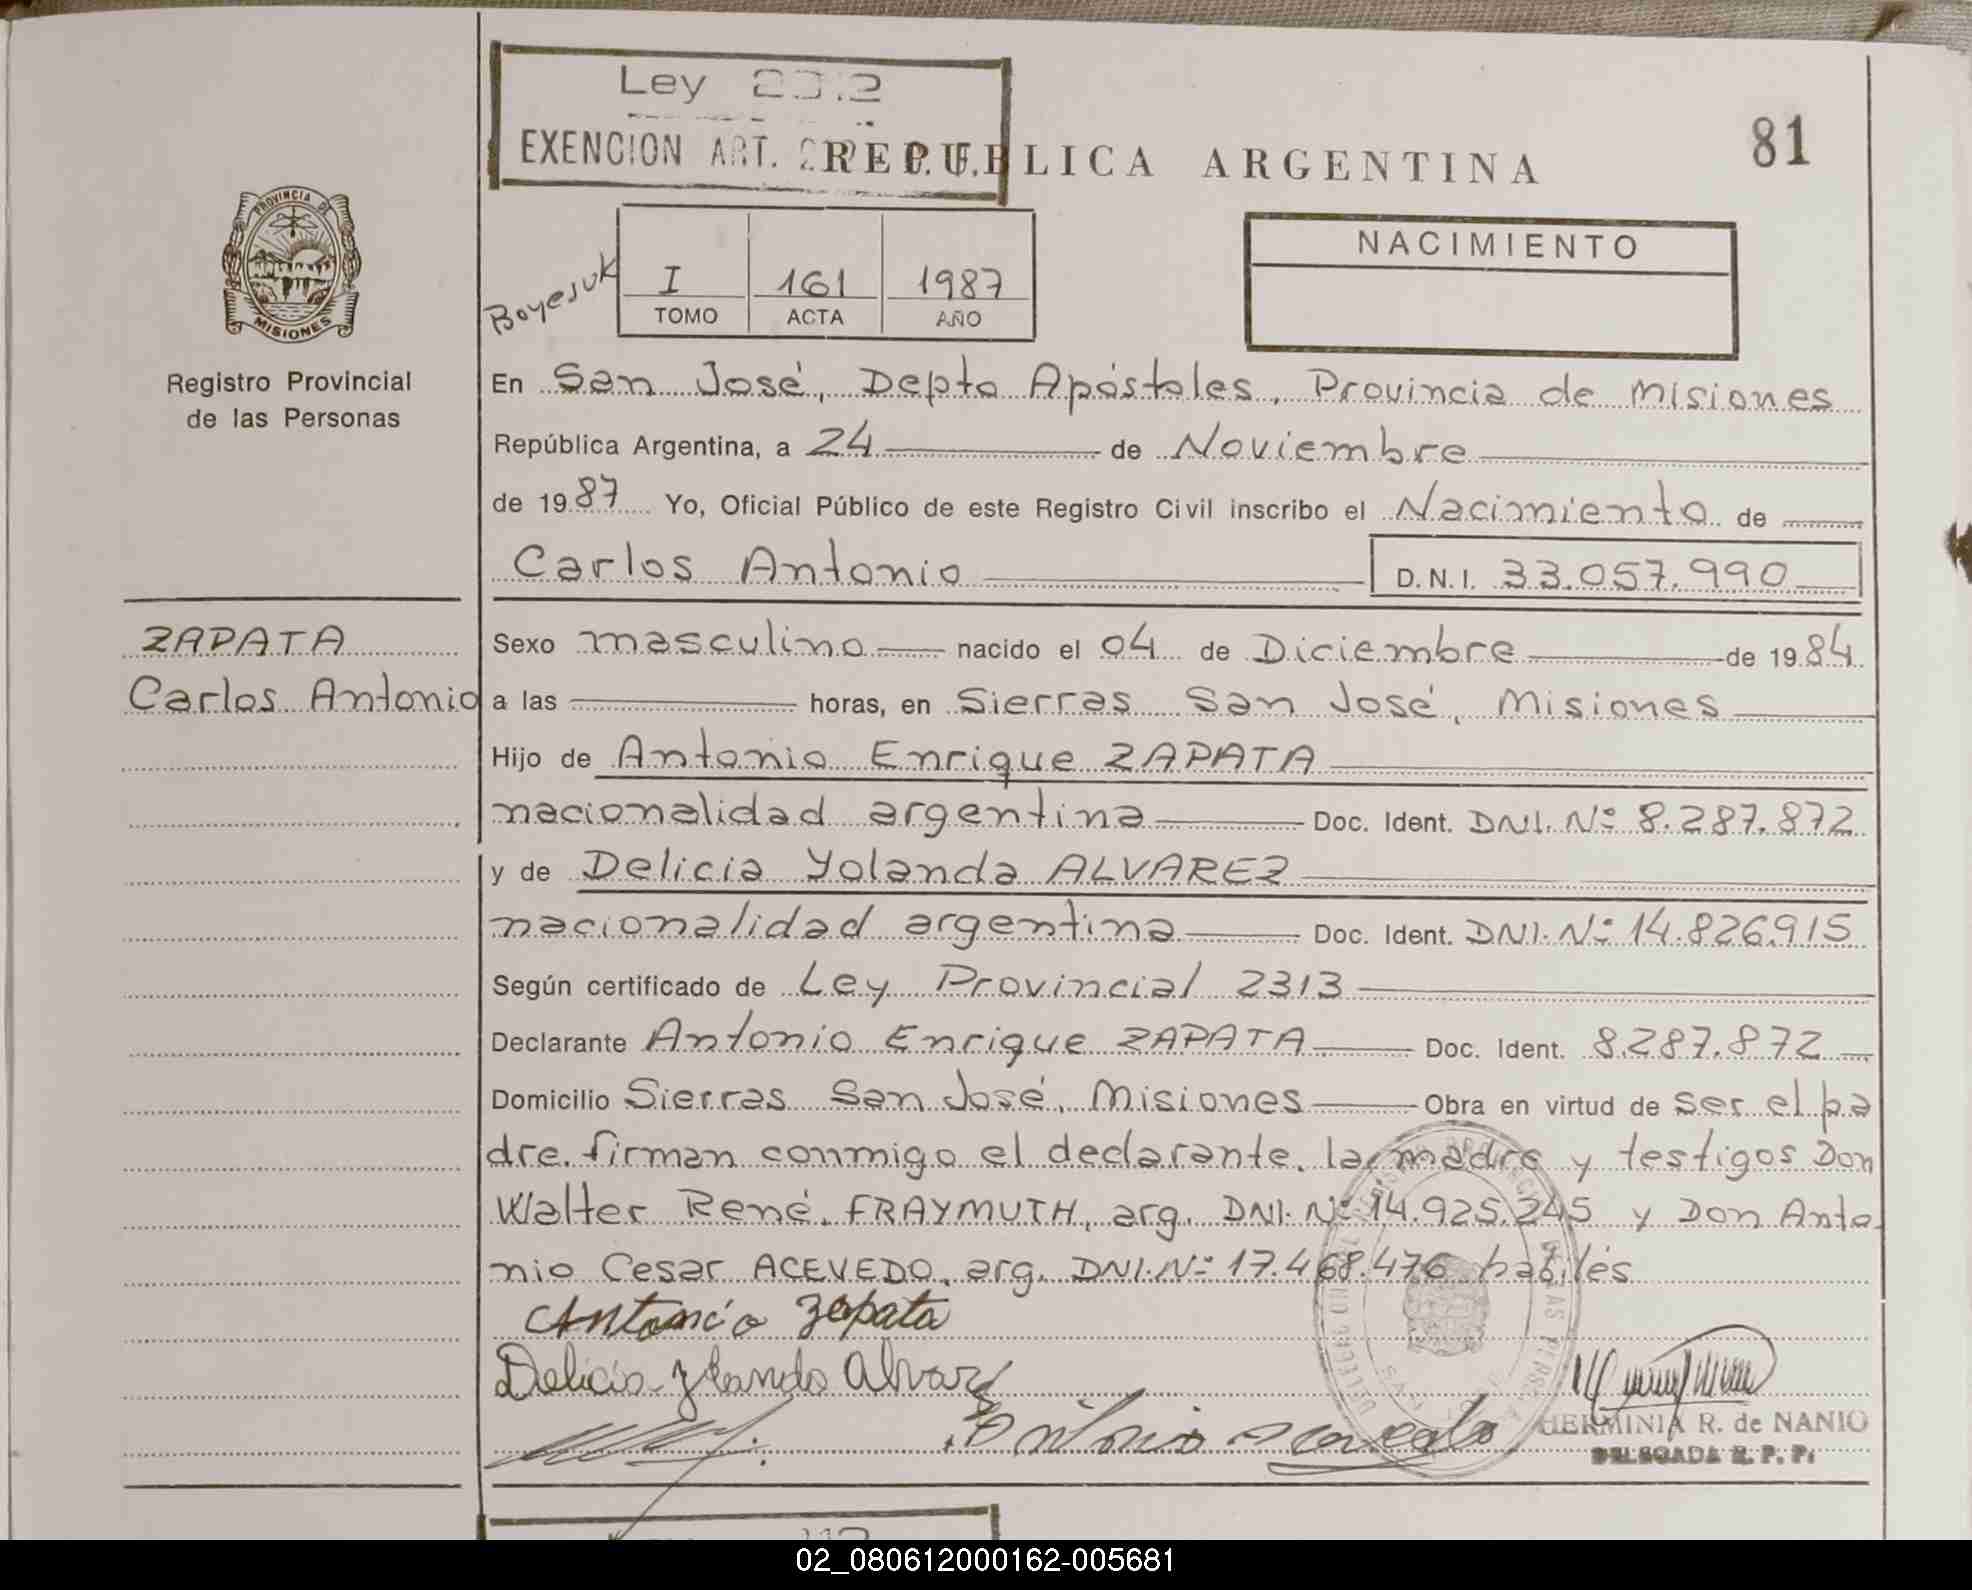 Ley
EXENCION ART.
REPUBLICA ARGENTINA
81
PROVINCIA DE
MISIONES
Registro Provincial
de las Personas
Boyesuk
I 161 1987
TOMO ACTA AÑO
NACIMIENTO
En San José, Depto Apóstoles, Provincia de Misiones
República Argentina, a 24 de Noviembre
de 1987 Yo, Oficial Público de este Registro Civil inscribo el Nacimiento de
Carlos Antonio D.N.I. 33.057.990
ZAPATA
Carlos Antonio
Sexo masculino nacido el 04 de Diciembre de 1984
a las horas, en Sierras San José, Misiones
Hijo de Antonio Enrique ZAPATA
nacionalidad argentina Doc. Ident. DNI. Nº 8.287.872
y de Delicia Yolanda ALVAREZ
nacionalidad argentina Doc. Ident. DNI. Nº 14.826.915
Según certificado de Ley Provincial 2313
Declarante Antonio Enrique ZAPATA Doc. Ident. 8.287.872
Domicilio Sierras San José, Misiones Obra en virtud de ser el pa
dre. firman conmigo el declarante, la madre y testigos Don
Walter René FRAYMUTH, arg. DNI. Nº 14.925.245 y Don Anto
nio Cesar ACEVEDO, arg. DNI. Nº 17.468.476 habilés
Antonio Zapata
Delicia Ylanda Alvarez
Antonio Acevedo
HERMINIA R. de NANIO
DELEGADA R. P. P.
02_080612000162-005681